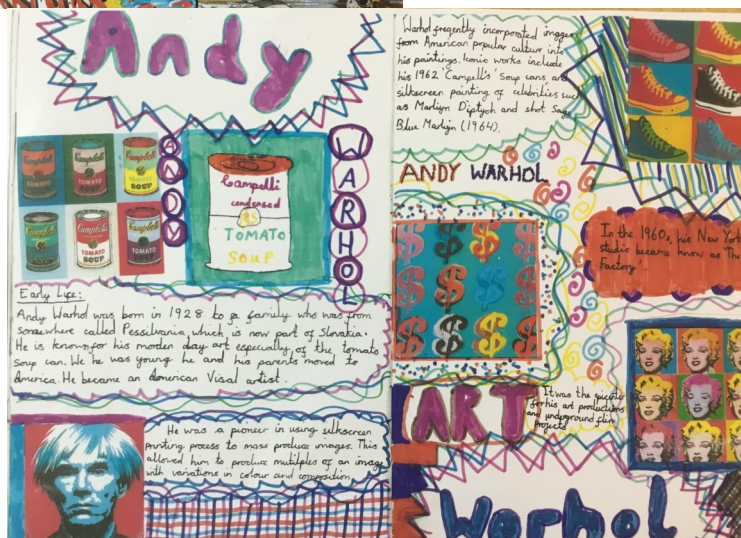 Andy
ANDY
WARHOL
Campbell's
TOMATO
SOUP
Campelli
condensed
TOMATO
SOUP
Early Life:
Andy Warhol was born in 1928 to a family who was from
somewhere called Pessilvania, which is now part of Slovakia.
He is known for his morden day art especially of the tomato
soup can. We he was young he and his parents moved to
America. He became an American Visal artist.
He was a pioneer in using silkscreen
printing process to mass produce images. This
allowed him to produce multiples of an image
with variations in colour and composition.
Warhol freqently incorporated images
from American popular culture into
his paintings. Iconic works include
his 1962 'Campell's' Soup cans, and
silkscreen painting of celebrities such
as Marlijn Diptych and shot Sage
Blue Marlijn (1964).
ANDY WARHOL
In the 1960s, his New York
studio became know as The
Factory.
ART
It was the
for his art productions
and underground film
projects
Warhol